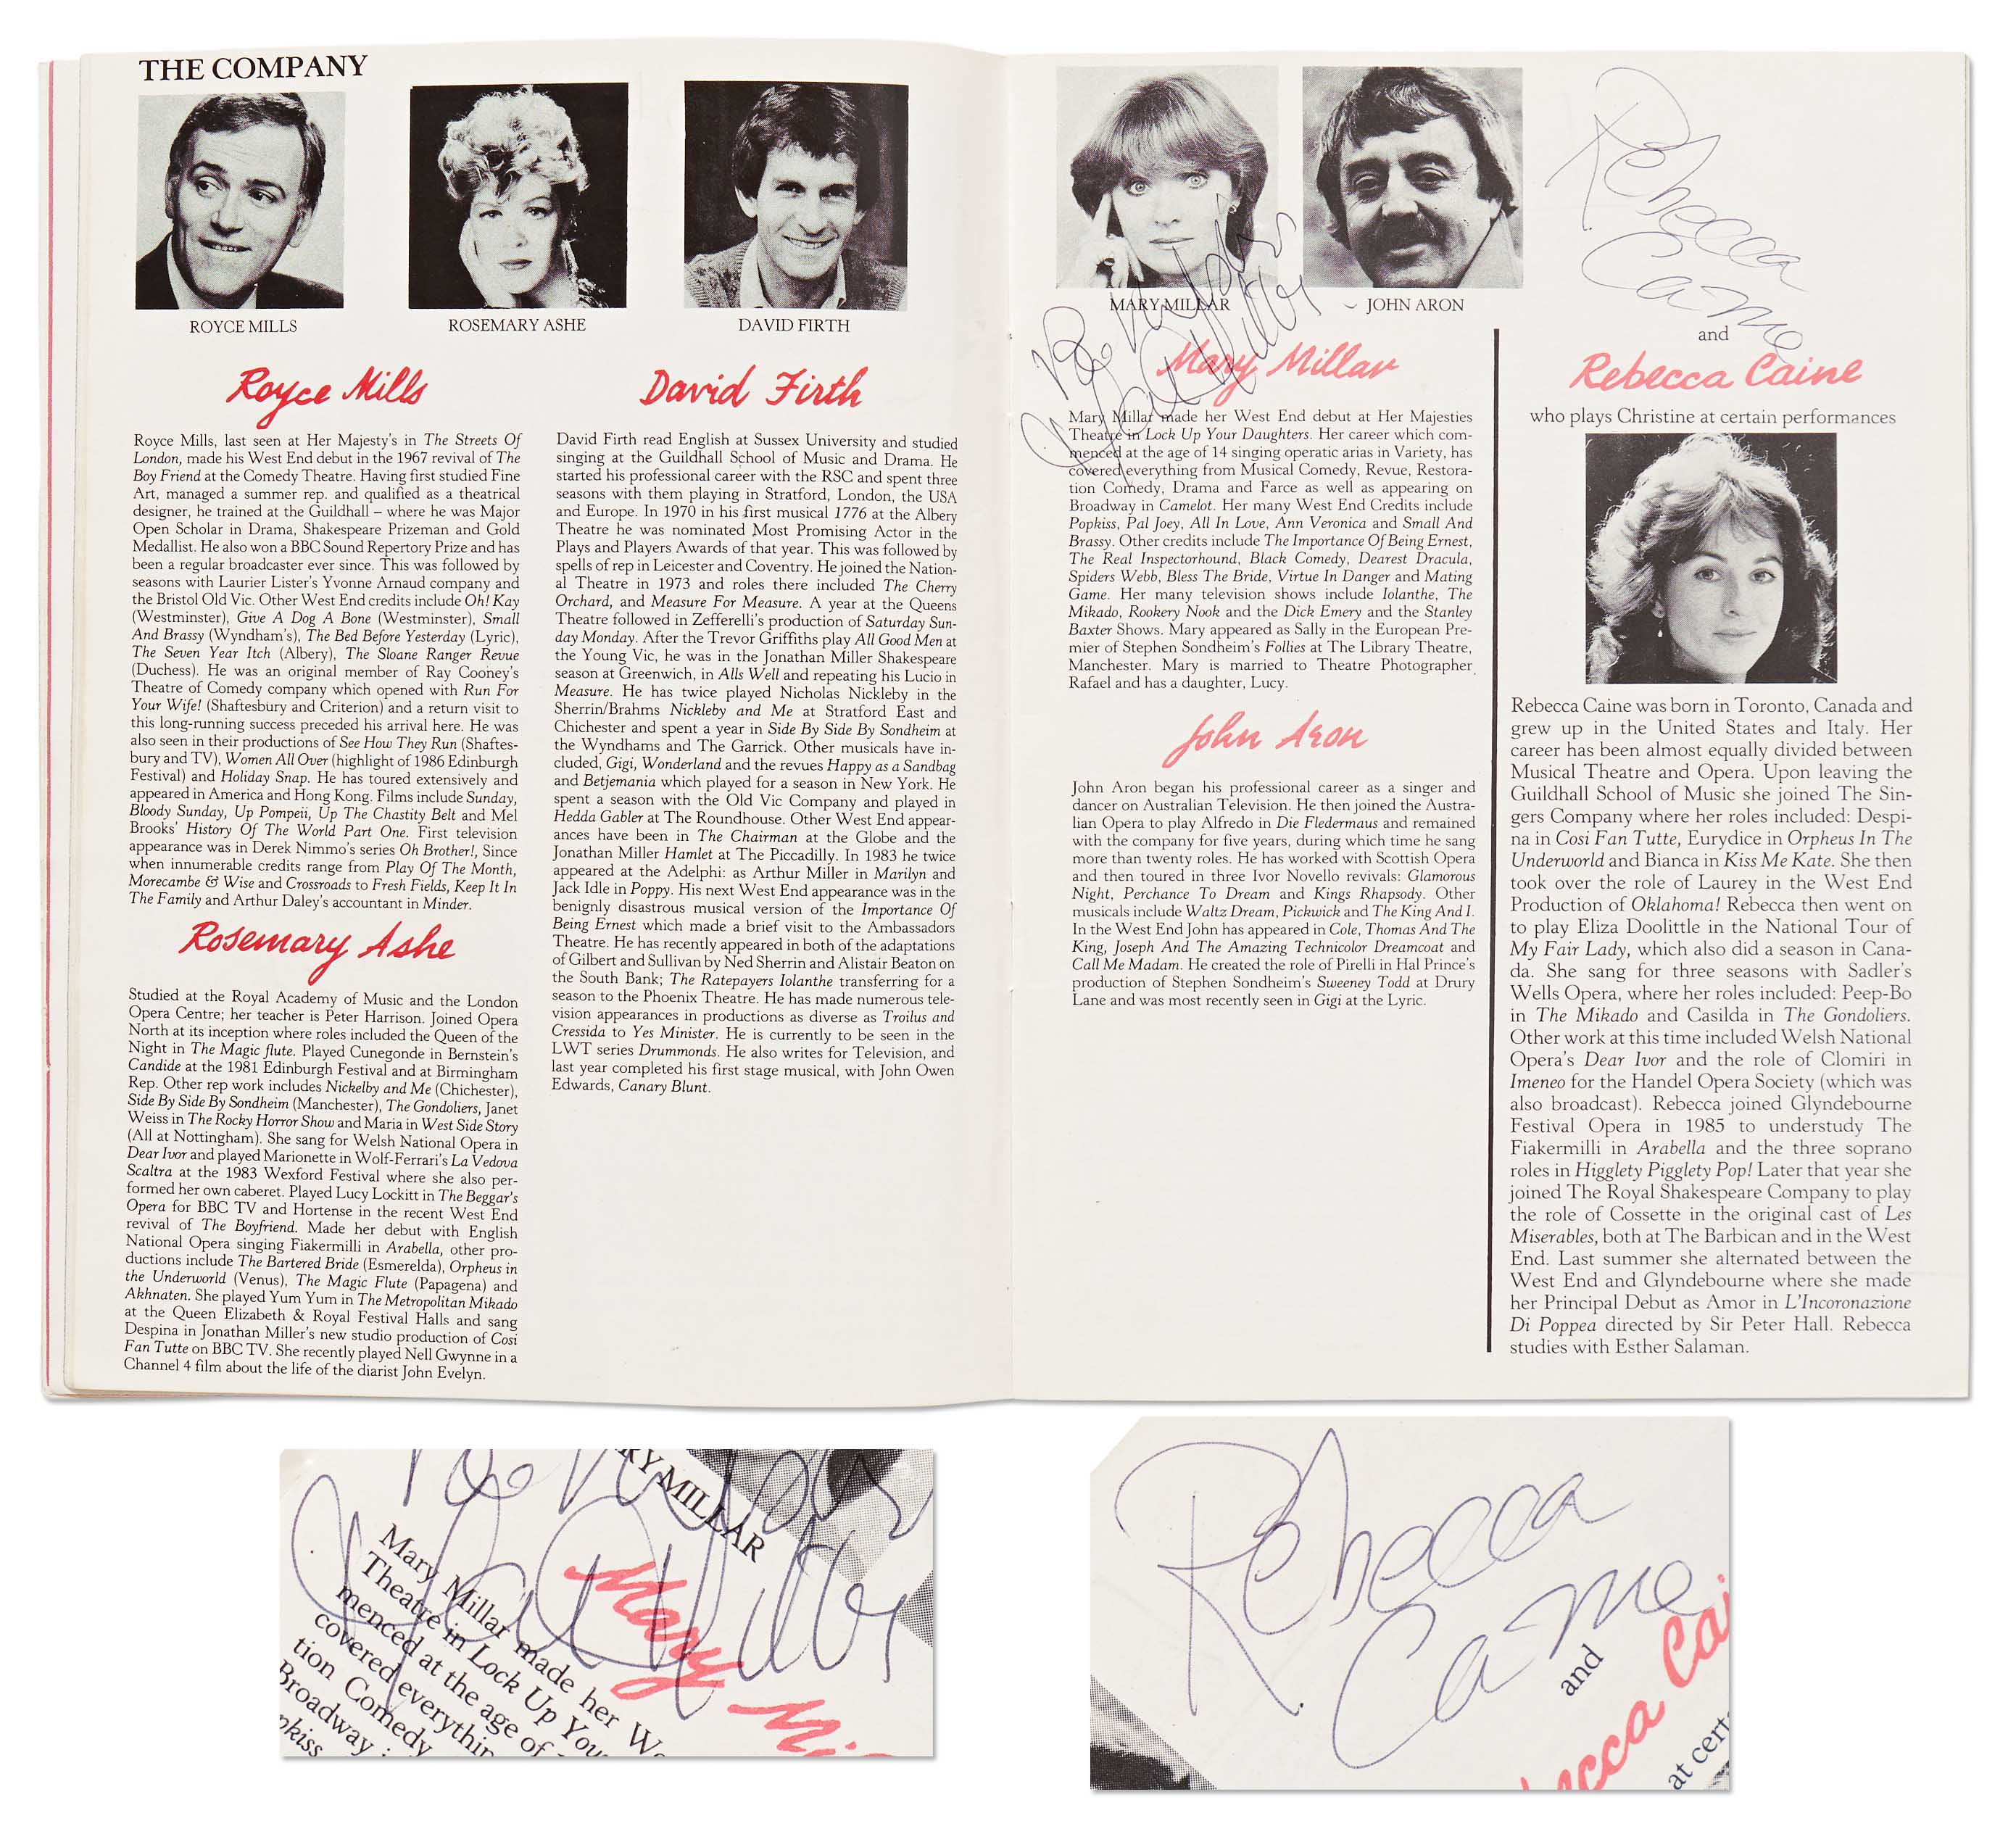 THE COMPANY
ROYCE MILLS
ROSEMARY ASHE
DAVID FIRTH
Royce Mills
Royce Mills, last seen at Her Majesty's in The Streets Of
London, made his West End debut in the 1967 revival of The
Boy Friend at the Comedy Theatre. Having first studied Fine
Art, managed a summer rep. and qualified as a theatrical
designer, he trained at the Guildhall – where he was Major
Open Scholar in Drama, Shakespeare Prizeman and Gold
Medallist. He also won a BBC Sound Repertory Prize and has
been a regular broadcaster ever since. This was followed by
seasons with Laurier Lister's Yvonne Arnaud company and
the Bristol Old Vic. Other West End credits include Oh! Kay
(Westminster), Give A Dog A Bone (Westminster), Small
And Brassy (Wyndham's), The Bed Before Yesterday (Lyric),
The Seven Year Itch (Albery), The Sloane Ranger Revue
(Duchess). He was an original member of Ray Cooney's
Theatre of Comedy company which opened with Run For
Your Wife! (Shaftesbury and Criterion) and a return visit to
this long-running success preceded his arrival here. He was
also seen in their productions of See How They Run (Shaftes-
bury and TV), Women All Over (highlight of 1986 Edinburgh
Festival) and Holiday Snap. He has toured extensively and
appeared in America and Hong Kong. Films include Sunday,
Bloody Sunday, Up Pompeii, Up The Chastity Belt and Mel
Brooks' History Of The World Part One. First television
appearance was in Derek Nimmo's series Oh Brother!, Since
when innumerable credits range from Play Of The Month,
Morecambe & Wise and Crossroads to Fresh Fields, Keep It In
The Family and Arthur Daley's accountant in Minder.
Rosemary Ashe
Studied at the Royal Academy of Music and the London
Opera Centre; her teacher is Peter Harrison. Joined Opera
North at its inception where roles included the Queen of the
Night in The Magic flute. Played Cunegonde in Bernstein's
Candide at the 1981 Edinburgh Festival and at Birmingham
Rep. Other rep work includes Nickelby and Me (Chichester),
Side By Side By Sondheim (Manchester), The Gondoliers, Janet
Weiss in The Rocky Horror Show and Maria in West Side Story
(All at Nottingham). She sang for Welsh National Opera in
Dear Ivor and played Marionette in Wolf-Ferrari's La Vedova
Scaltra at the 1983 Wexford Festival where she also per-
formed her own caberet. Played Lucy Lockitt in The Beggar's
Opera for BBC TV and Hortense in the recent West End
revival of The Boyfriend. Made her debut with English
National Opera singing Fiakermilli in Arabella, other pro-
ductions include The Bartered Bride (Esmerelda), Orpheus in
the Underworld (Venus), The Magic Flute (Papagena) and
Akhnaten. She played Yum Yum in The Metropolitan Mikado
at the Queen Elizabeth & Royal Festival Halls and sang
Despina in Jonathan Miller's new studio production of Cosi
Fan Tutte on BBC TV. She recently played Nell Gwynne in a
Channel 4 film about the life of the diarist John Evelyn.
David Firth
David Firth read English at Sussex University and studied
singing at the Guildhall School of Music and Drama. He
started his professional career with the RSC and spent three
seasons with them playing in Stratford, London, the USA
and Europe. In 1970 in his first musical 1776 at the Albery
Theatre he was nominated Most Promising Actor in the
Plays and Players Awards of that year. This was followed by
spells of rep in Leicester and Coventry. He joined the Nation-
al Theatre in 1973 and roles there included The Cherry
Orchard, and Measure For Measure. A year at the Queens
Theatre followed in Zefferelli's production of Saturday Sun-
day Monday. After the Trevor Griffiths play All Good Men at
the Young Vic, he was in the Jonathan Miller Shakespeare
season at Greenwich, in Alls Well and repeating his Lucio in
Measure. He has twice played Nicholas Nickleby in the
Sherrin/Brahms Nickleby and Me at Stratford East and
Chichester and spent a year in Side By Side By Sondheim at
the Wyndhams and The Garrick. Other musicals have in-
cluded, Gigi, Wonderland and the revues Happy as a Sandbag
and Betjemania which played for a season in New York. He
spent a season with the Old Vic Company and played in
Hedda Gabler at The Roundhouse. Other West End appear-
ances have been in The Chairman at the Globe and the
Jonathan Miller Hamlet at The Piccadilly. In 1983 he twice
appeared at the Adelphi: as Arthur Miller in Marilyn and
Jack Idle in Poppy. His next West End appearance was in the
benignly disastrous musical version of the Importance Of
Being Ernest which made a brief visit to the Ambassadors
Theatre. He has recently appeared in both of the adaptations
of Gilbert and Sullivan by Ned Sherrin and Alistair Beaton on
the South Bank; The Ratepayers Iolanthe transferring for a
season to the Phoenix Theatre. He has made numerous tele-
vision appearances in productions as diverse as Troilus and
Cressida to Yes Minister. He is currently to be seen in the
LWT series Drummonds. He also writes for Television, and
last year completed his first stage musical, with John Owen
Edwards, Canary Blunt.
MARY MILLAR
JOHN ARON
Mary Millar
Mary Millar made her West End debut at Her Majesties
Theatre in Lock Up Your Daughters. Her career which com-
menced at the age of 14 singing operatic arias in Variety, has
covered everything from Musical Comedy, Revue, Restora-
tion Comedy, Drama and Farce as well as appearing on
Broadway in Camelot. Her many West End Credits include
Popkiss, Pal Joey, All In Love, Ann Veronica and Small And
Brassy. Other credits include The Importance Of Being Ernest,
The Real Inspectorhound, Black Comedy, Dearest Dracula,
Spiders Webb, Bless The Bride, Virtue In Danger and Mating
Game. Her many television shows include Iolanthe, The
Mikado, Rookery Nook and the Dick Emery and the Stanley
Baxter Shows. Mary appeared as Sally in the European Pre-
mier of Stephen Sondheim's Follies at The Library Theatre,
Manchester. Mary is married to Theatre Photographer
Rafael and has a daughter, Lucy.
John Aron
John Aron began his professional career as a singer and
dancer on Australian Television. He then joined the Austra-
lian Opera to play Alfredo in Die Fledermaus and remained
with the company for five years, during which time he sang
more than twenty roles. He has worked with Scottish Opera
and then toured in three Ivor Novello revivals: Glamorous
Night, Perchance To Dream and Kings Rhapsody. Other
musicals include Waltz Dream, Pickwick and The King And I.
In the West End John has appeared in Cole, Thomas And The
King, Joseph And The Amazing Technicolor Dreamcoat and
Call Me Madam. He created the role of Pirelli in Hal Prince's
production of Stephen Sondheim's Sweeney Todd at Drury
Lane and was most recently seen in Gigi at the Lyric.
Rebecca
Caine
and
Rebecca Caine
who plays Christine at certain performances
Rebecca Caine was born in Toronto, Canada and
grew up in the United States and Italy. Her
career has been almost equally divided between
Musical Theatre and Opera. Upon leaving the
Guildhall School of Music she joined The Sin-
gers Company where her roles included: Despi-
na in Cosi Fan Tutte, Eurydice in Orpheus In The
Underworld and Bianca in Kiss Me Kate. She then
took over the role of Laurey in the West End
Production of Oklahoma! Rebecca then went on
to play Eliza Doolittle in the National Tour of
My Fair Lady, which also did a season in Cana-
da. She sang for three seasons with Sadler's
Wells Opera, where her roles included: Peep-Bo
in The Mikado and Casilda in The Gondoliers.
Other work at this time included Welsh National
Opera's Dear Ivor and the role of Clomiri in
Imeneo for the Handel Opera Society (which was
also broadcast). Rebecca joined Glyndebourne
Festival Opera in 1985 to understudy The
Fiakermilli in Arabella and the three soprano
roles in Higglety Pigglety Pop! Later that year she
joined The Royal Shakespeare Company to play
the role of Cossette in the original cast of Les
Miserables, both at The Barbican and in the West
End. Last summer she alternated between the
West End and Glyndebourne where she made
her Principal Debut as Amor in L'Incoronazione
Di Poppea directed by Sir Peter Hall. Rebecca
studies with Esther Salaman.
RY MILLAR
Mary Mi
Mary Millar made her We
Theatre in Lock Up You
menced at the age of
covered everythin
tion Comedy
Broadway i
pkiss
Rebecca
Caine
and
ecca Cai
at cert